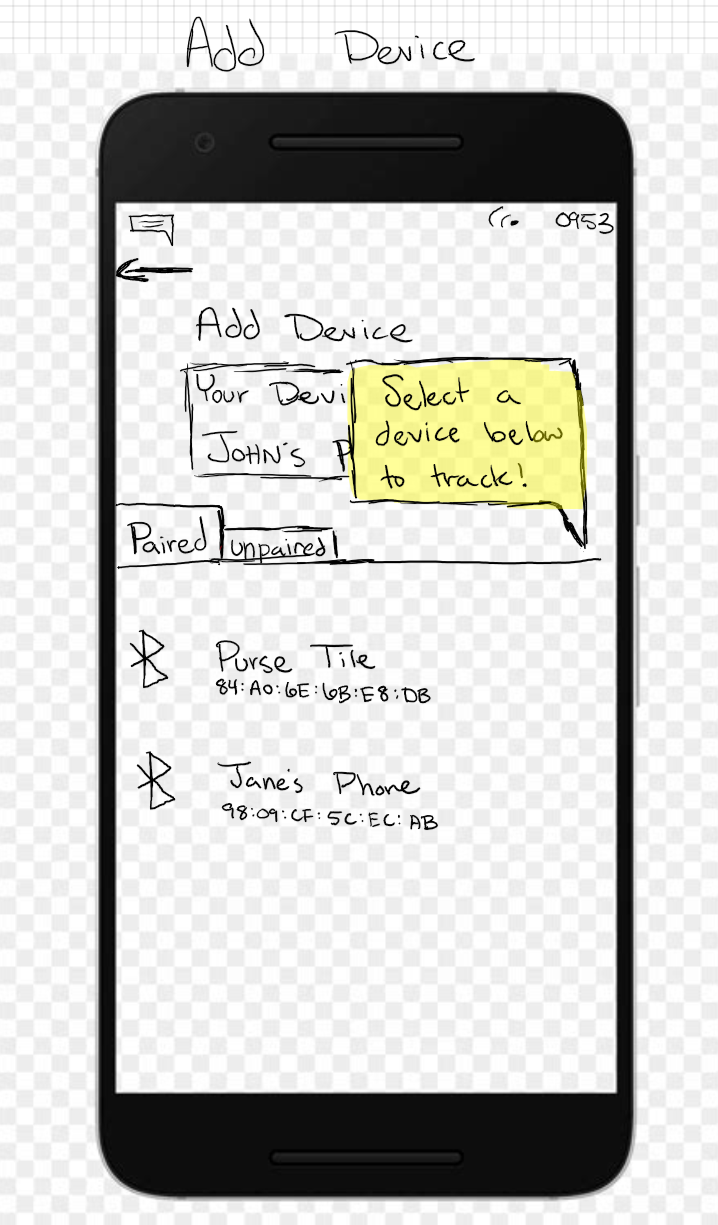 Add Device
0953
Add Device
Your Devi
JOHN'S P
Select a
device below
to track!
Paired
unpaired
Purse Tile
84:A0:6E:6B:E8:DB
Jane's Phone
98:09:CF:5C:EC:AB